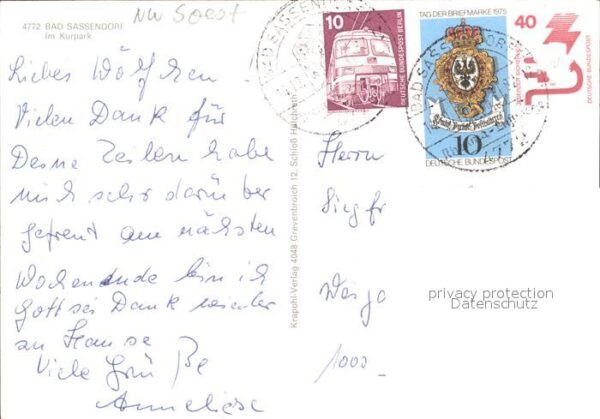 NW Soest
4772 BAD SASSENDORF
Im Kurpark
Liebes Wölfchen.
Vielen Dank für
Deine Zeilen habe
mich sehr darüber
gefreut am nächsten
Wochenende bin ich
Gott sei Dank wieder
zu Hause
Viele Grüße
Anneliese
Krapohl-Verlag 4048 Grevenbroich 12, Schloß Hülchrath
10
DEUTSCHE BUNDESPOST BERLIN
TAG DER BRIEFMARKE 1975
10
DEUTSCHE BUNDESPOST
40
DEUTSCHE BUNDESPOST
BAD SASSENDORF
4772
Herrn
Siegfr
1000
privacy protection
Datenschutz